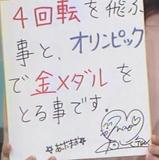 4回転を飛ぶ
事と、オリンピック
で金メダルを
とる事です。